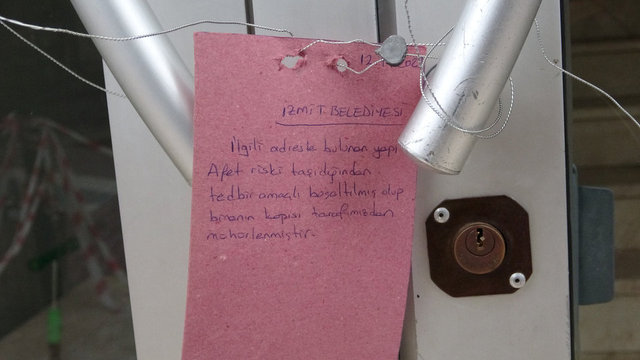 İZMİT BELEDİYESİ
İlgili adreste bulunan yapı
Afet riski taşıdığından
tedbir amaçlı boşaltılmış olup
binanın kapısı tarafımızdan
mühürlenmiştir.